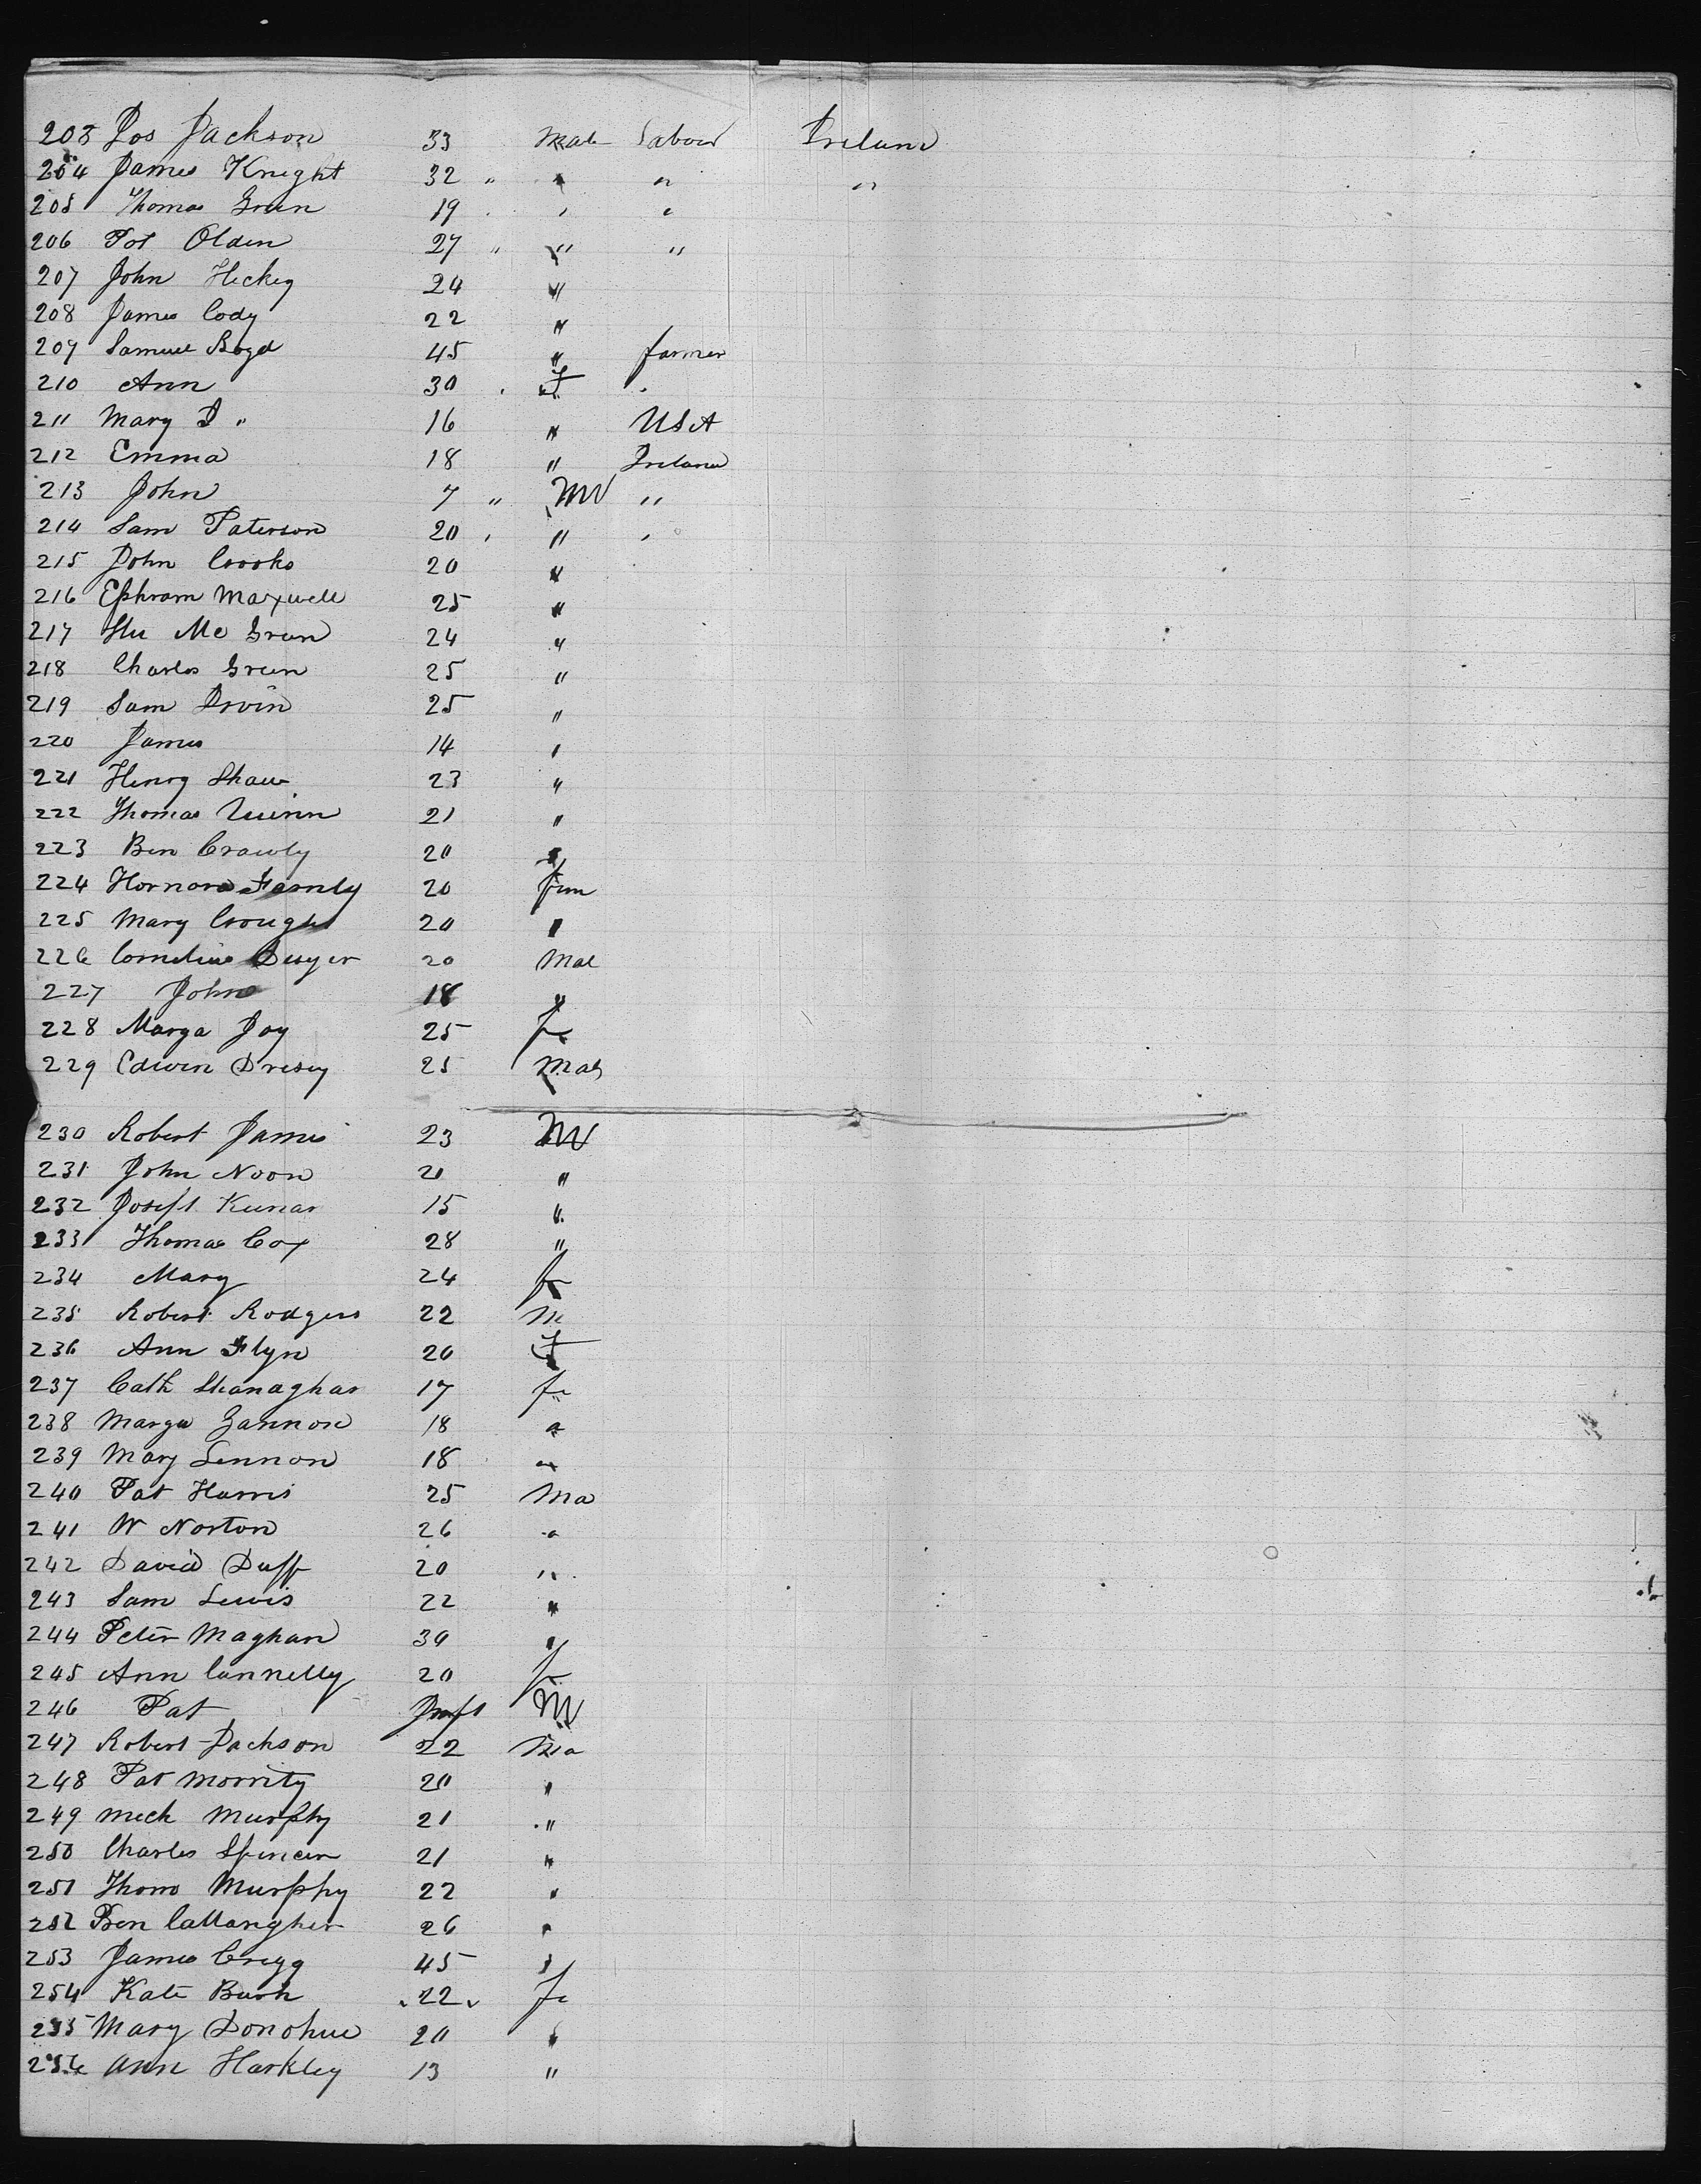 203 Jos Jackson 33 Male Labour Ireland
204 James Knight 32 " " " "
205 Thomas Green 19 " " "
206 Pat Olden 27 " " "
207 John Hickey 24 "
208 James Cody 22 "
209 Samuel Boyd 45 " farmer
210 Ann 30 " f "
211 Mary J " 16 " USA
212 Emma 18 " Ireland
213 John 7 " M "
214 Sam Paterson 20 " " "
215 John Crooks 20 "
216 Ephram Maxwell 25 "
217 Mc Green 24 "
218 Charles Green 25 "
219 Sam Irvin 25 "
220 James 14 "
221 Henry Shaw 23 "
222 Thomas Quinn 21 "
223 Ben Crawly 20 "
224 Hornora Family 20 fem
225 Mary Crough 20 "
226 Cornelius Dwyer 20 Mal
227 John 18 "
228 Marga Joy 25 fe
229 Edwin 25 Male
230 Robert James 23 M
231 John Noon 21 "
232 Joseph Kunar 15 "
233 Thomas Cox 28 "
234 Mary 24 fe
235 Robert Rodgers 22 M
236 Ann Flyn 20 f
237 Cath Shanaghar 17 fe
238 Marga Gannon 18 "
239 Mary Lennon 18 "
240 Pat Harris 25 Ma
241 W Norton 26 "
242 David Duff 20 "
243 Sam Lewis 22 "
244 Peter Maghan 30 "
245 Ann Connelly 20 fe
246 Pat Inft M
247 Robert Jackson 22 Ma
248 Pat Morrity 20 "
249 Mick Murphy 21 "
250 Charles Spincer 21 "
251 Thom Murphy 22 "
252 Ben Callangher 26 "
253 James Gregg 45 "
254 Kate Bush 22 fe
255 Mary Donohue 20 "
256 Ann Harkley 13 "